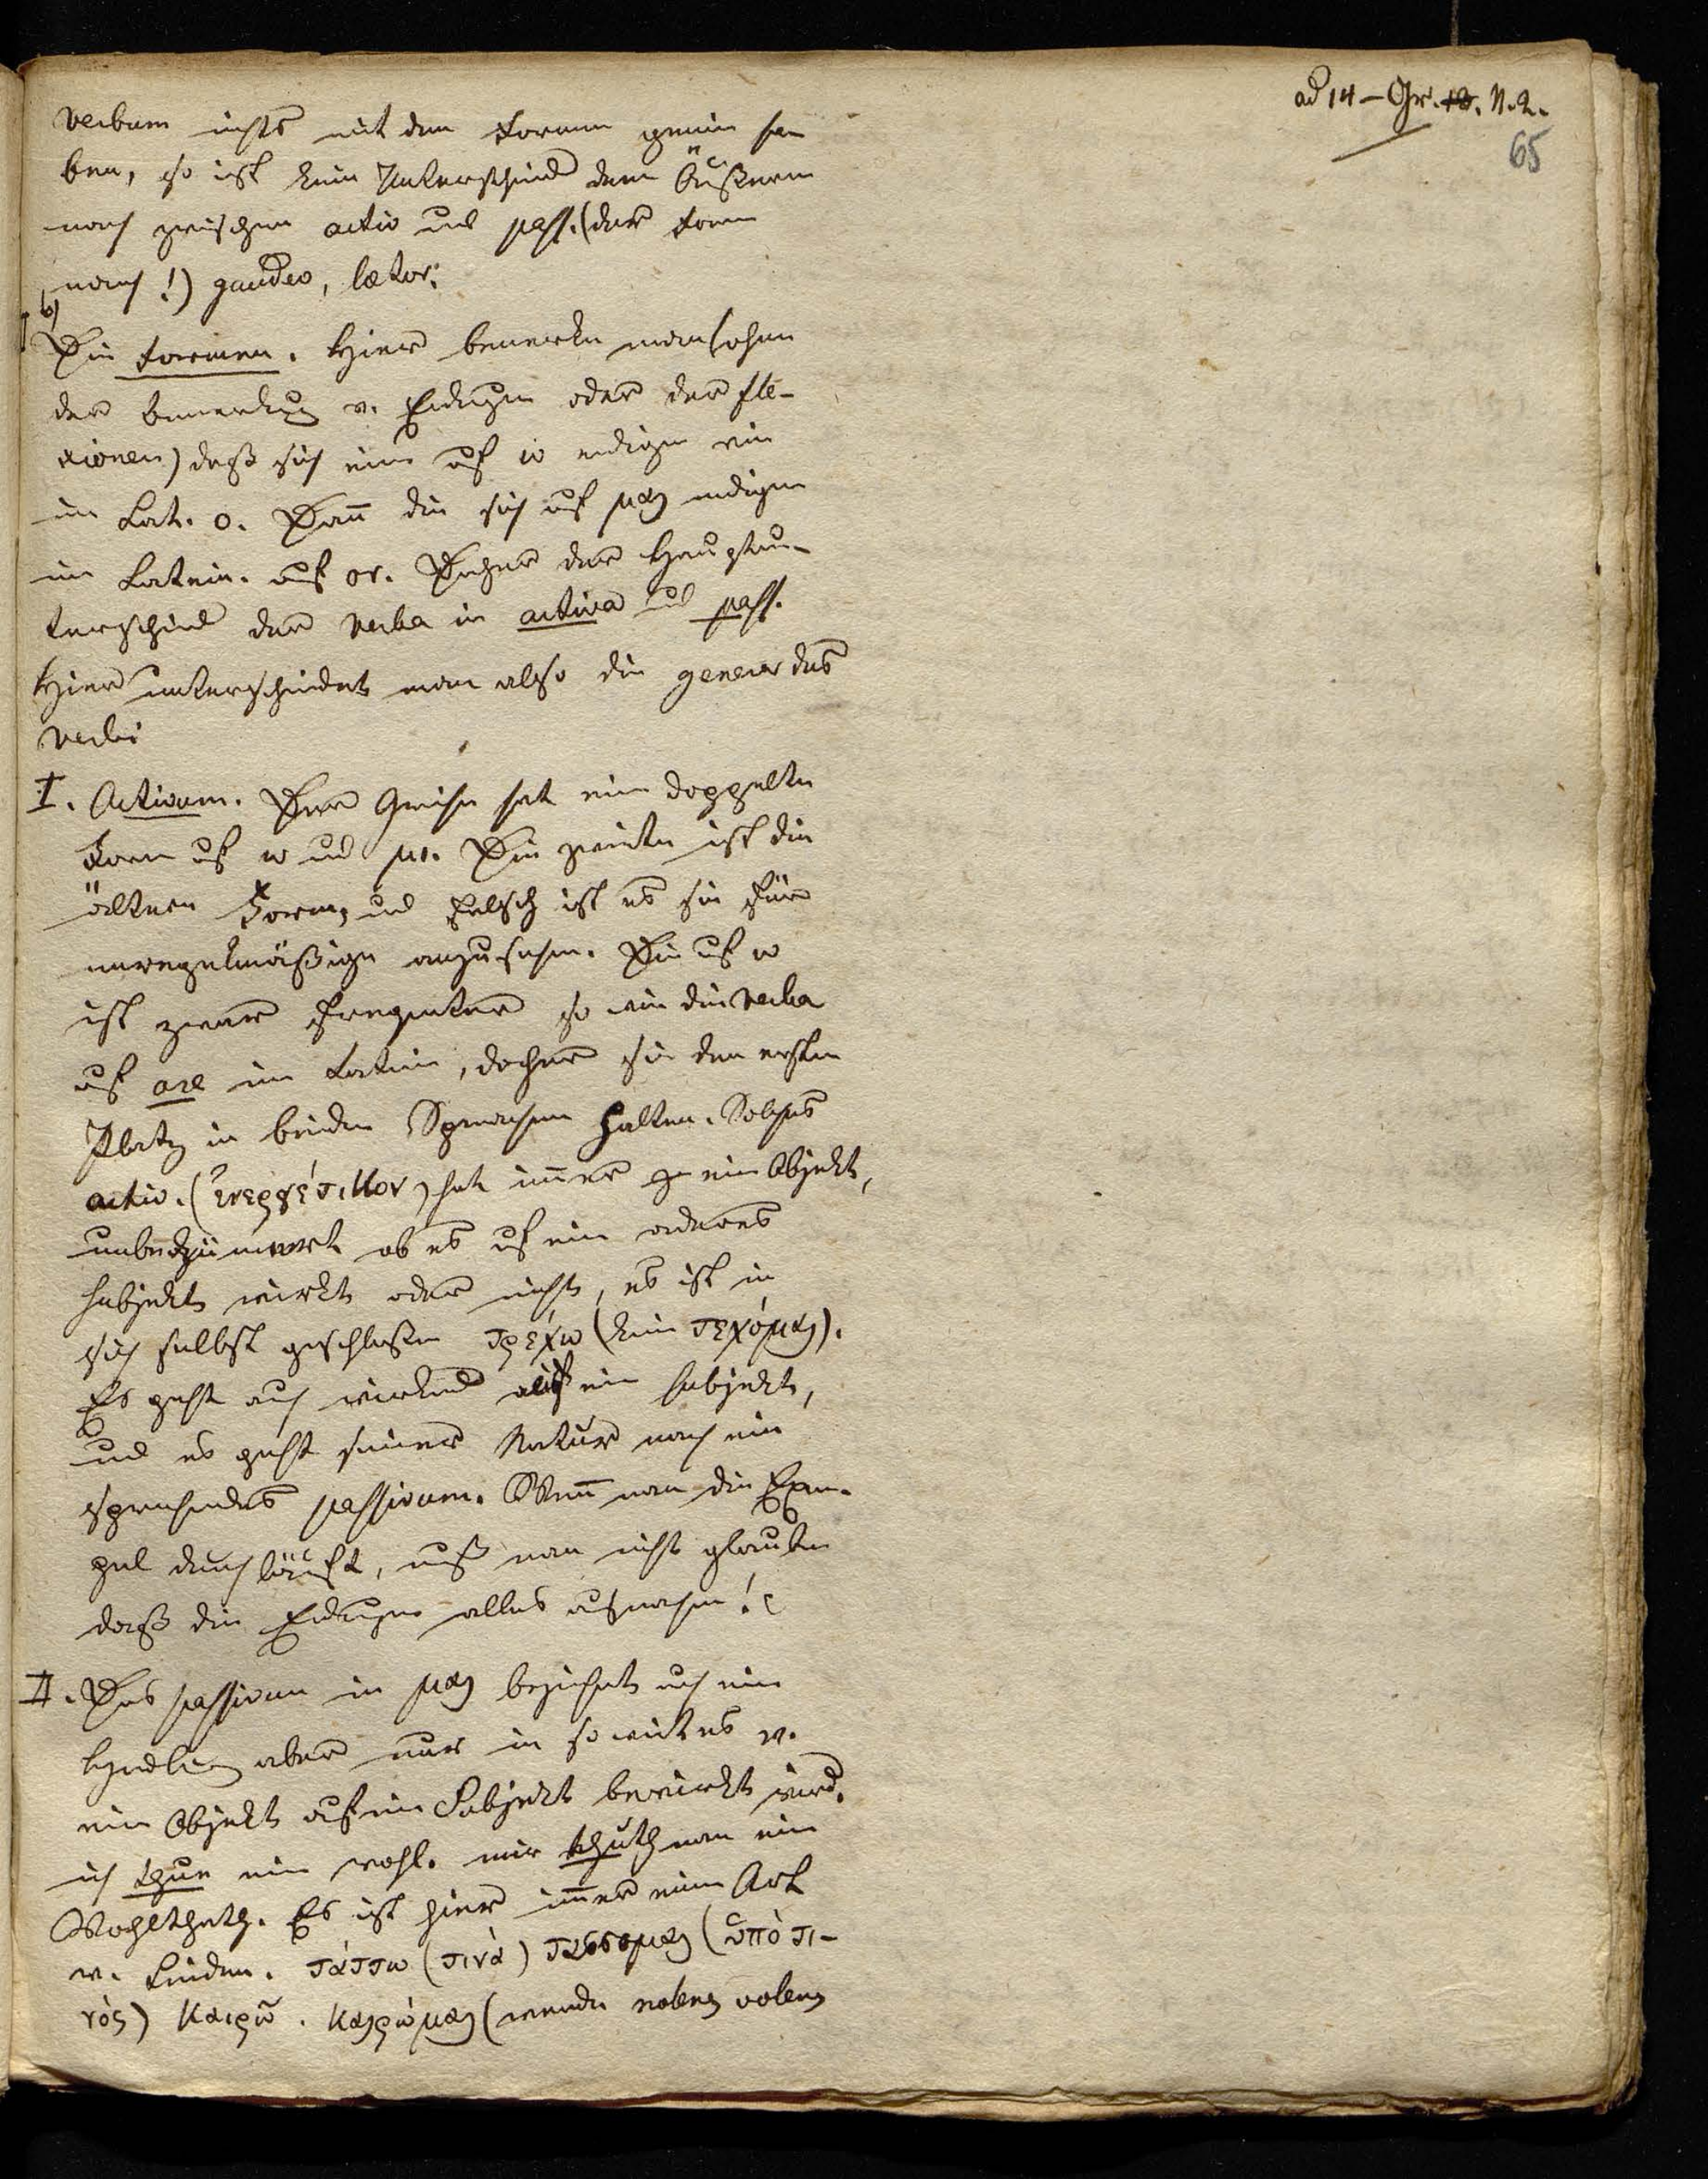 ad 14 – Gr. 10. N. 2.
65
verbum nichts mit den Formen gemein ha
ben, so ist kein Unterschied dem Äußern
nach zwischen activ und pass. (der Form
nach!) gaudeo, laetor.
b)
Die Formen. Hier bemerke man (ohne
der Bemerkung v. Endungen oder der fle-
xionen) daß sich eine auf ω endigen wie
im Lat. o. Dann die sich auf μαι endigen
im Latein. auf or. Daher der Hauptun-
terschied der Verba in activa und pass.
Hier unterscheidet man also die genera des
Verbi
I. Activum. Der Grieche hat eine doppelte
Form auf ω und μι. Die zweite ist die
ältere Form, und falsch ist es sie für
unregelmäßige anzusehen. Die auf ω
ist zwar frequenter so wie die Verba
auf are im Latein, daher sie den ersten
Platz in beiden Sprachen halten. Solches
activ. (ἐνεργέτικον) hat immer ein Objekt,
unbekümmert ob es auf ein anderes
Subjekt wirkt oder nicht, es ist in
sich selbst geschlossen τρέχω (kein τεχόμαι).
Es geht auch wirkend auf ein Subjekt,
und es geht seiner Natur nach ein
sprechendes passivum. Wenn man die Exem-
pel durchläuft, muß man nicht glauben
daß die Endungen alles ausmachen!
II. Das passivum in μαι bezeichnet auch ein
Handeln aber nur in so weit es v.
ein Objekt auf ein Subjekt bewirkt wird.
ich thue ein wohl. mir thuth man ein
Wohlthath. Es ist hier immer eine Art
v. Leiden. τάττω (τινὰ) τάσσομαι (ὑπό τι-
νός) καιρῶ. καιρώμαι (werde nolens volens